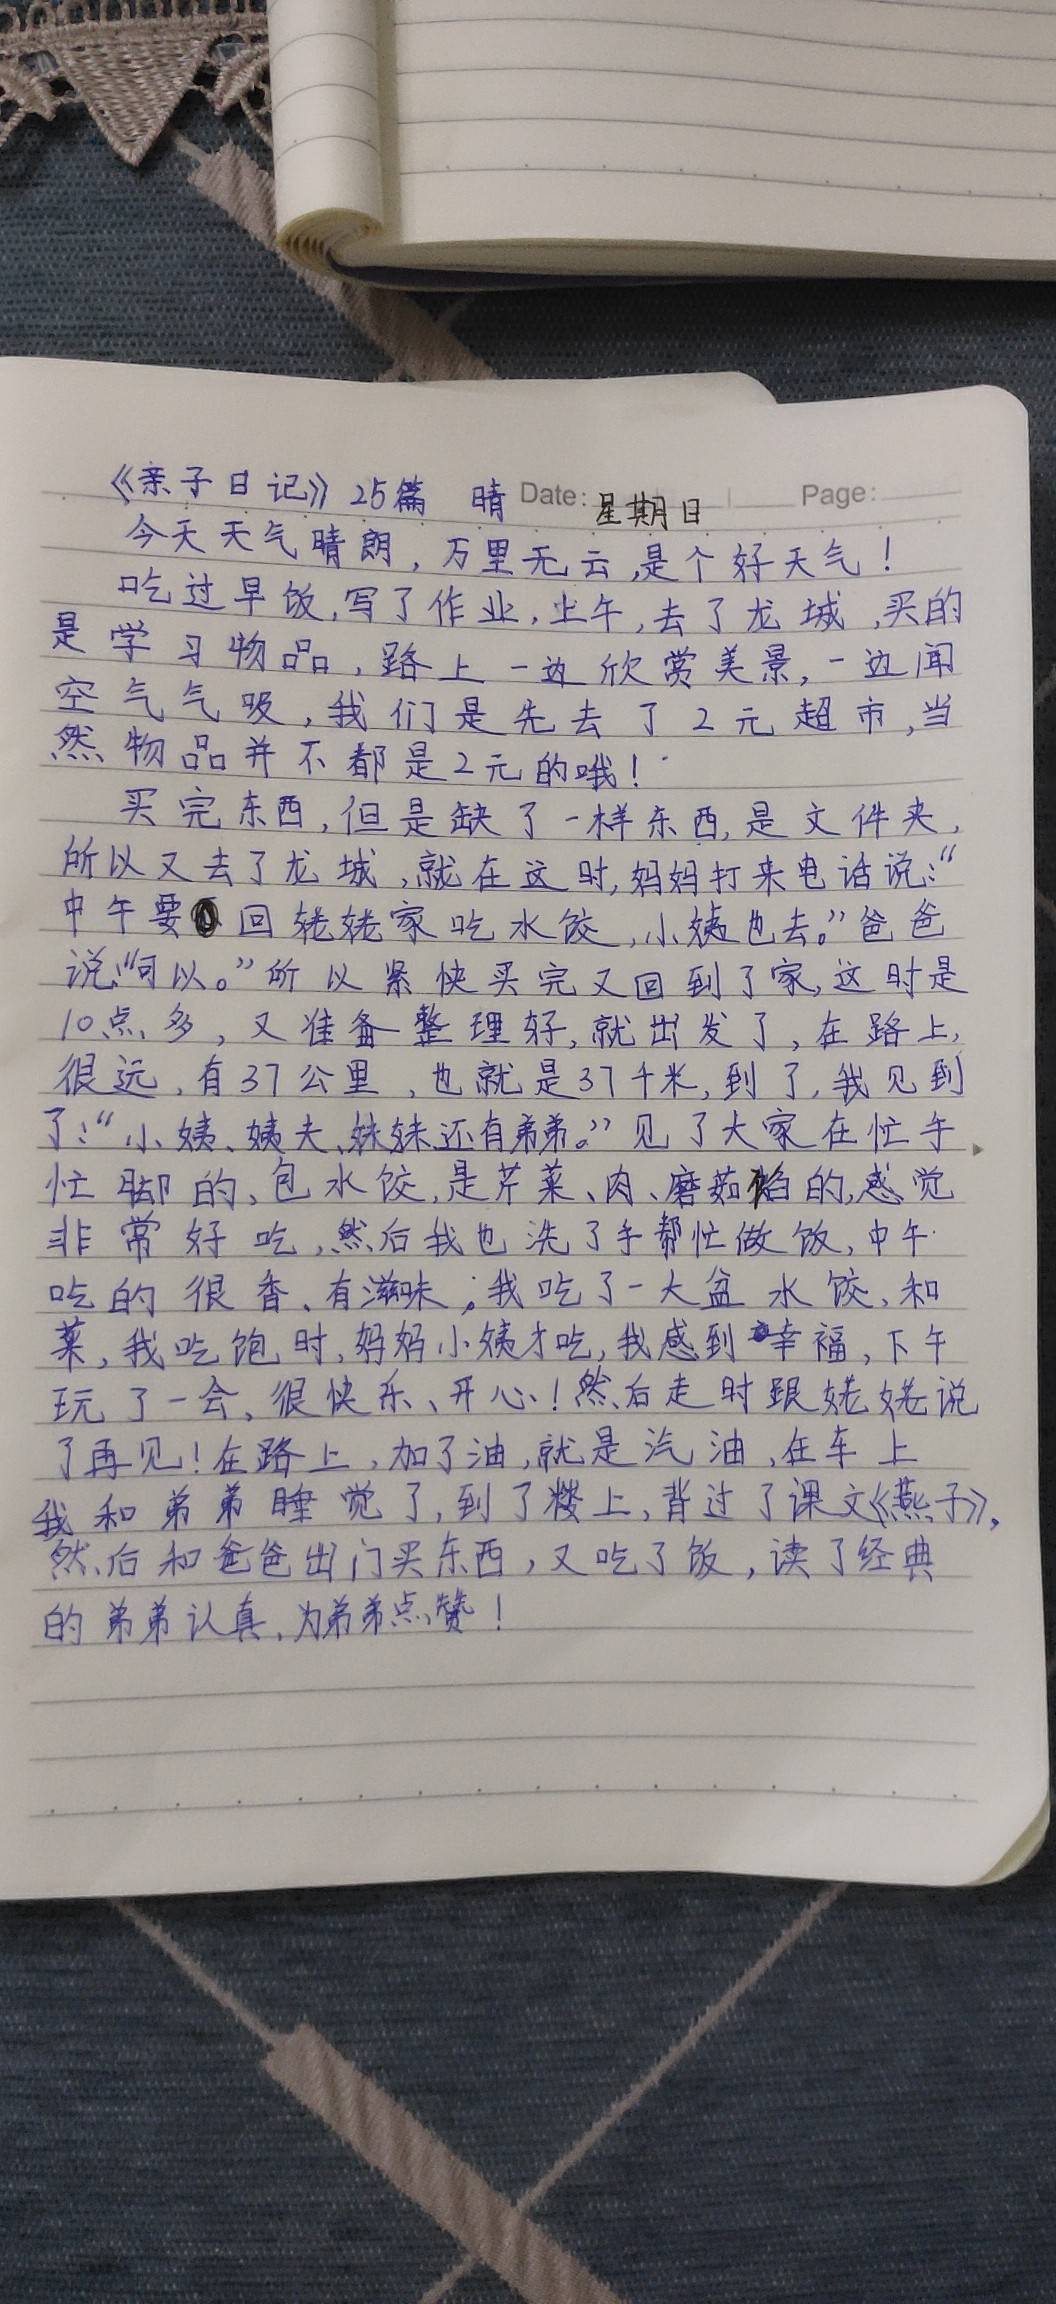 《亲子日记》25篇 晴 Date: 星期日 Page:
今天天气晴朗,万里无云,是个好天气!
吃过早饭,写了作业,上午,去了龙城,买的
是学习物品,路上一边欣赏美景,一边闻
空气气吸,我们是先去了2元超市,当
然物品并不都是2元的哦!
买完东西,但是缺了一样东西,是文件夹,
所以又去了龙城,就在这时,妈妈打来电话说:“
中午要回姥姥家吃水饺,小姨也去。”爸爸
说:“可以。”所以紧快买完又回到了家,这时是
10点多,又准备整理好,就出发了,在路上,
很远,有37公里,也就是37千米,到了,我见到
了:“小姨、姨夫、妹妹还有弟弟。”见了大家在忙手
忙脚的、包水饺,是芹菜、肉、磨茹馅的,感觉
非常好吃,然后我也洗了手帮忙做饭,中午
吃的很香、有滋味。我吃了一大盆水饺、和
菜,我吃饱时,妈妈小姨才吃,我感到幸福,下午
玩了一会、很快乐、开心!然后走时跟姥姥说
了再见!在路上,加了油,就是汽油,在车上
我和弟弟睡觉了,到了楼上,背过了课文《燕子》,
然后和爸爸出门买东西,又吃了饭,读了经典
的弟弟认真,为弟弟点赞!